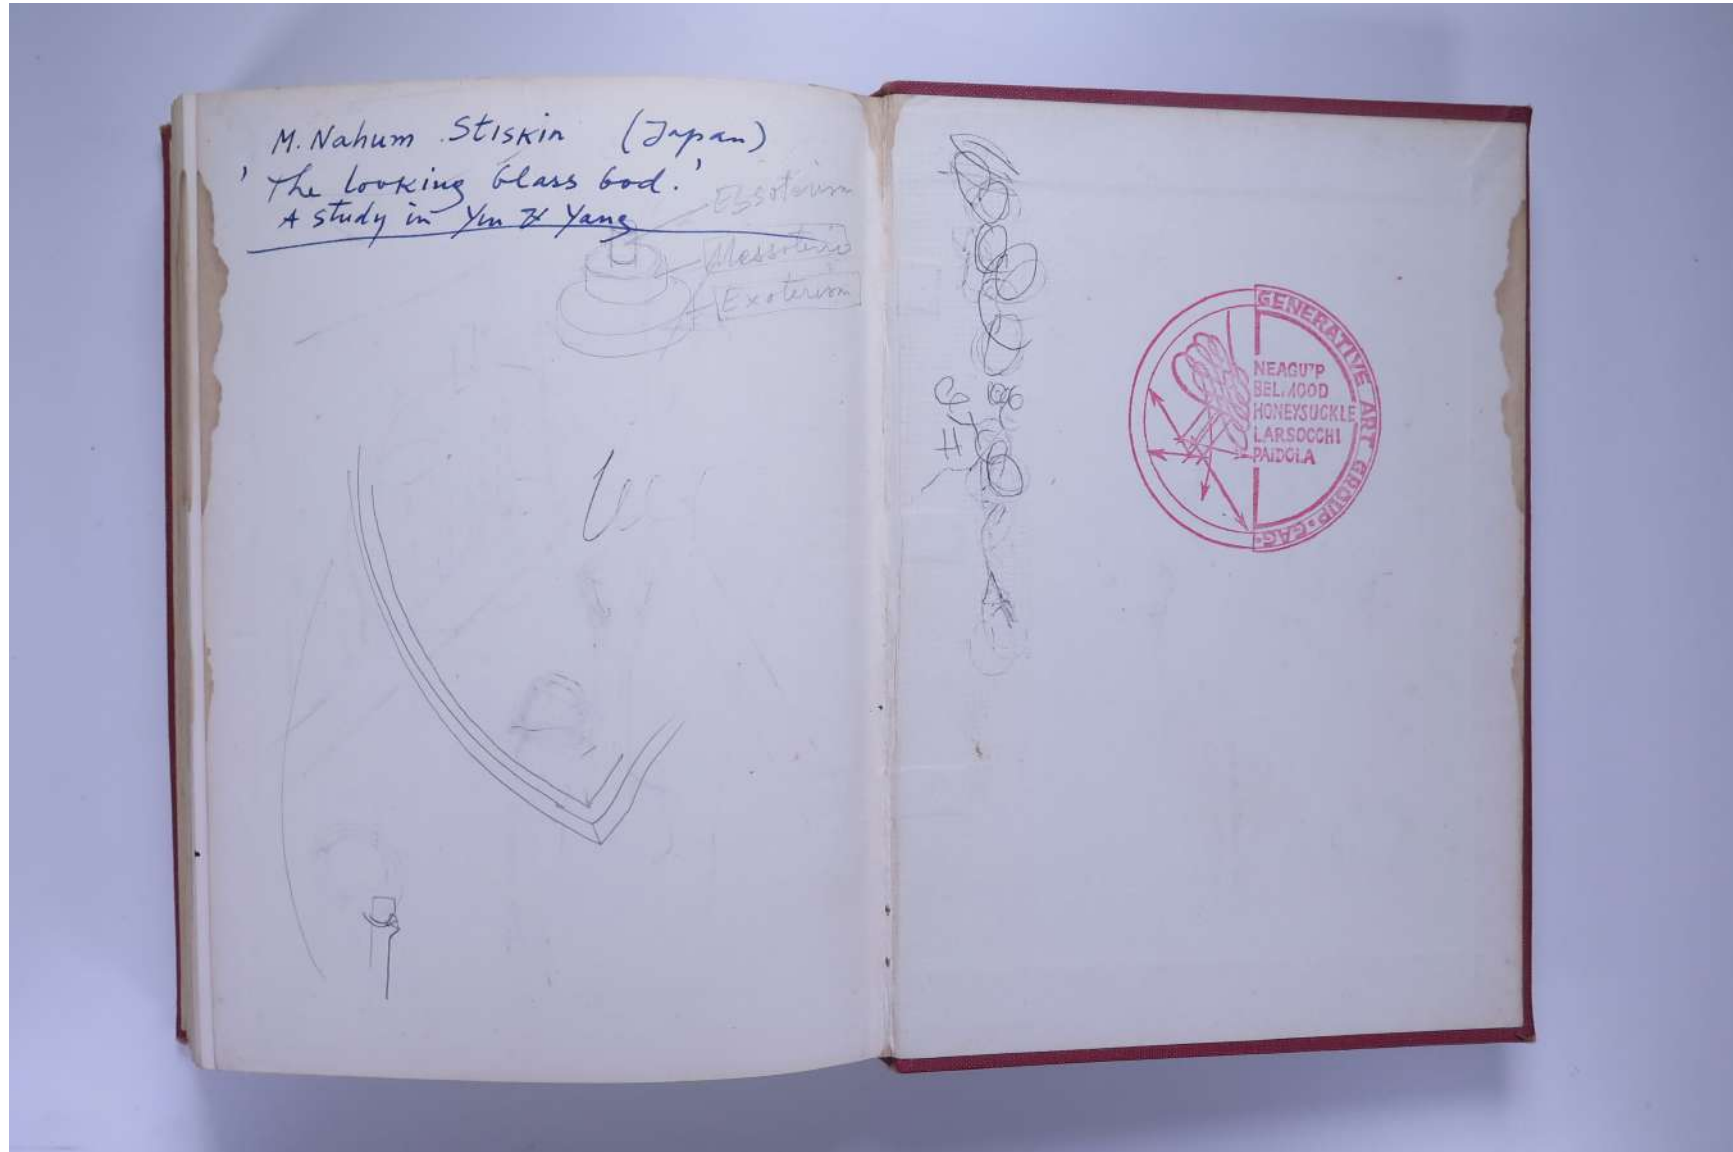 M. Nahum Stiskin (Japan)
'The Looking Glass God.'
A study in Yin & Yang
Essoterism
Messoteric
Exoterism
GENERATIVE ART GROUP · GAG ·
NEAGU'P
BELMOOD
HONEYSUCKLE
LARSOCCHI
PAIDOLA